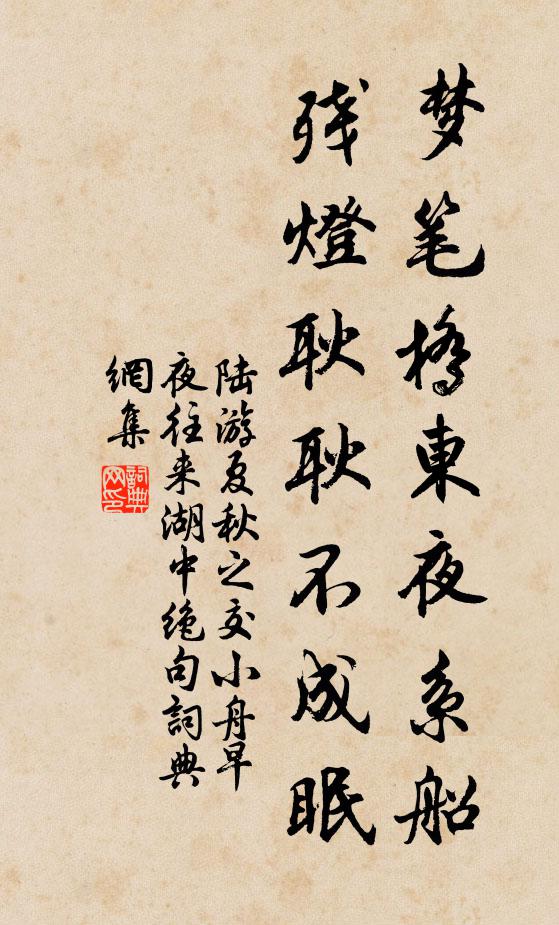 梦笔桥東夜系船
残燈耿耿不成眠
陆游夏秋之交小舟早
夜往来湖中绝句詞典
網集
詞典網印